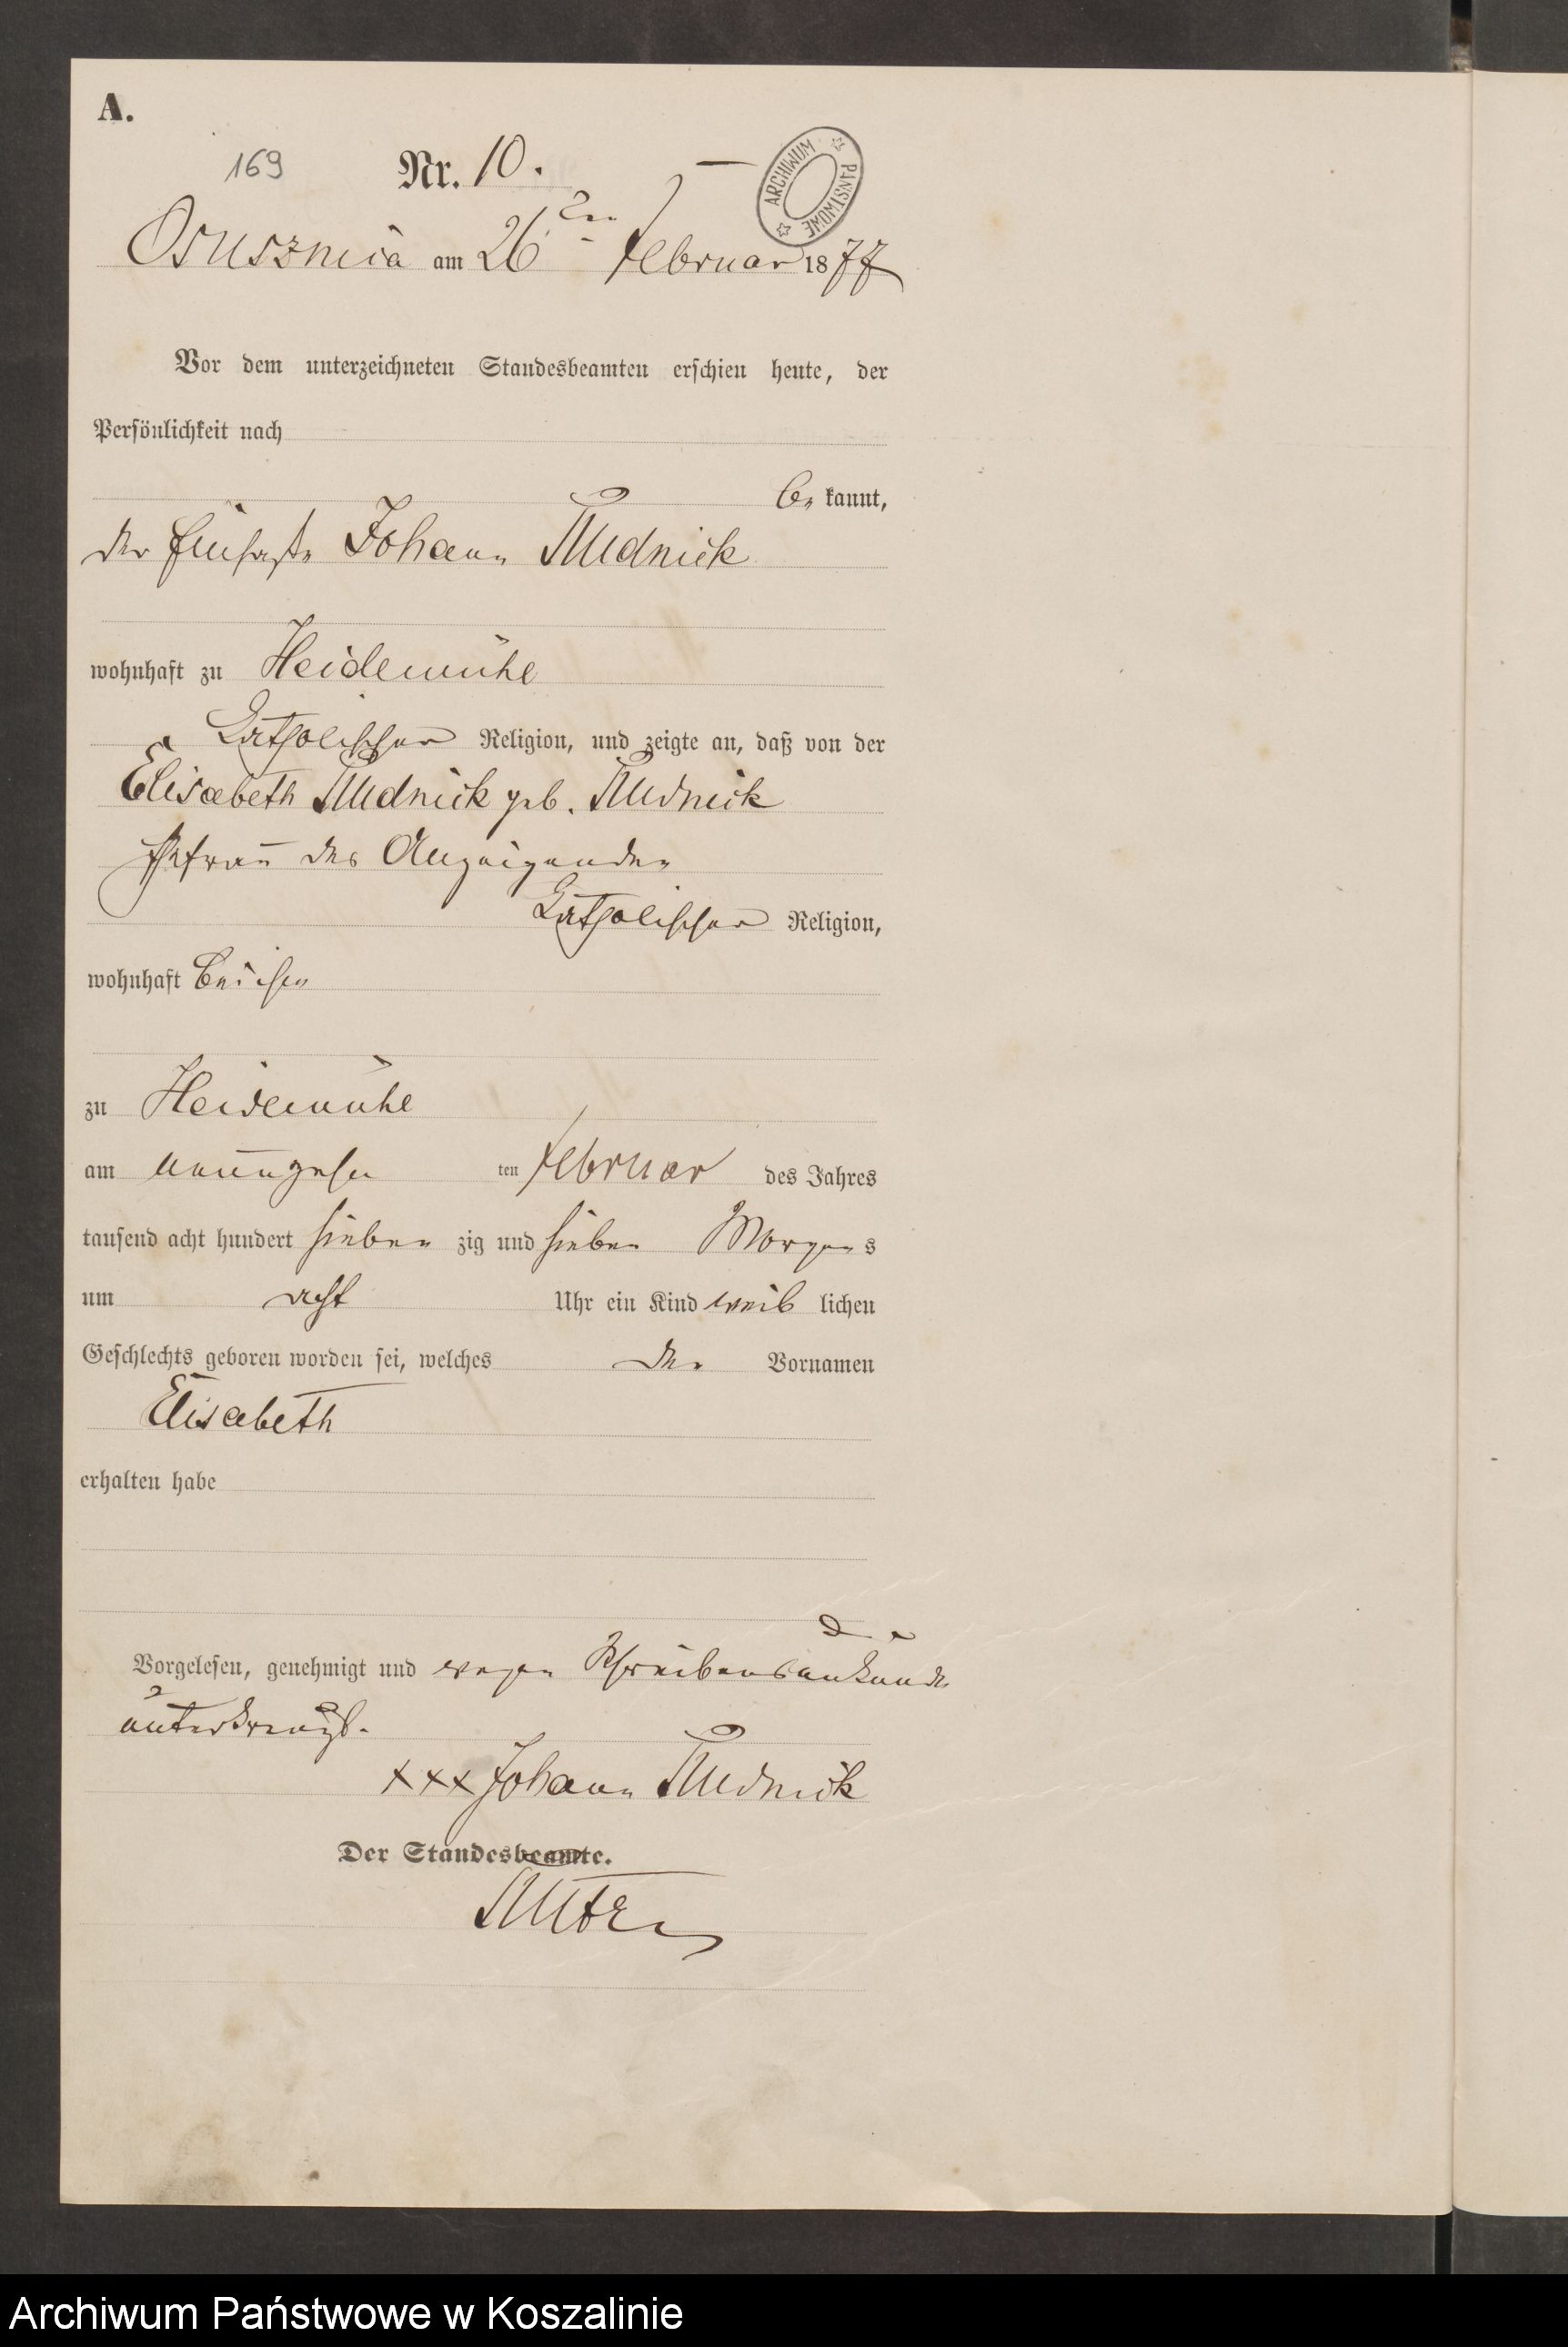 A.
169 Nr. 10.
ARCHIWUM PAŃSTWOWE
Osusznica am 26ten Februar 1877
Vor dem unterzeichneten Standesbeamten erschien heute, der
Persönlichkeit nach
be kannt,
der Einsaße Johann Rudnick
wohnhaft zu Heidemühl
katholischer Religion, und zeigte an, daß von der
Elisabeth Rudnick geb. Rudnick
Ehefrau des Anzeigenden
katholischer Religion,
wohnhaft bei ihm
zu Heidemühl
am neunzehn ten Februar des Jahres
tausend acht hundert sieben zig und sieben Morgens
um acht Uhr ein Kind weib lichen
Geschlechts geboren worden sei, welches den Vornamen
Elisabeth
erhalten habe
Vorgelesen, genehmigt und wegen Schreibensunkunde
unterkreuzt.
xxx Johann Rudnick
Der Standesbeamte.
Archiwum Państwowe w Koszalinie